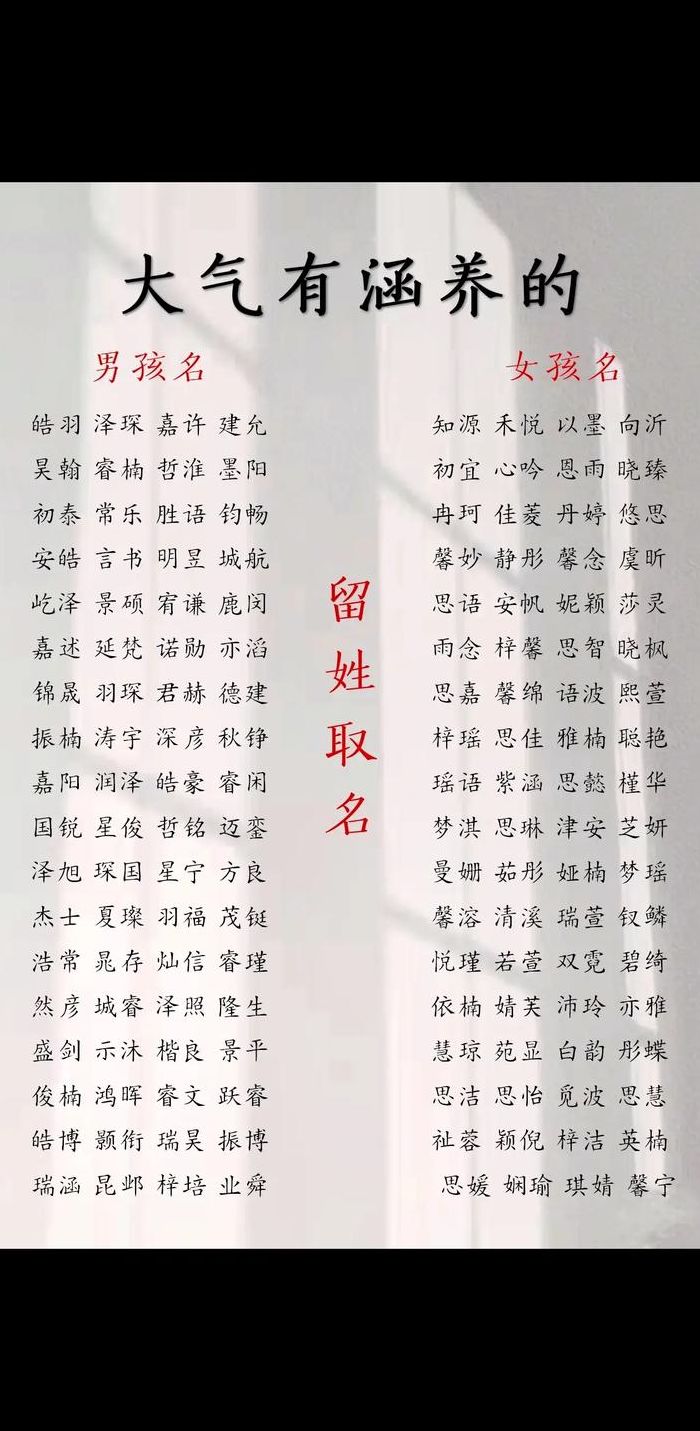 大气有涵养的
男孩名
皓羽 泽琛 嘉许 建允
昊翰 睿楠 哲淮 墨阳
初泰 常乐 胜语 钧畅
安皓 言书 明昱 城航
屹泽 景硕 宥谦 鹿闵
嘉述 延梵 诺勋 亦滔
锦晟 羽琛 君赫 德建
振楠 涛宇 深彦 秋铮
嘉阳 润泽 皓豪 睿闲
国锐 星俊 哲铭 迈銮
泽旭 琛国 星宁 方良
杰士 夏璨 羽福 茂铤
浩常 晁存 灿信 睿瑾
然彦 城睿 泽照 隆生
盛剑 示沐 楷良 景平
俊楠 鸿晖 睿文 跃睿
皓博 颢衔 瑞昊 振博
瑞涵 昆邺 梓培 业舜
留姓取名
女孩名
知源 禾悦 以墨 向沂
初宜 心吟 恩雨 晓臻
冉珂 佳菱 丹婷 悠思
馨妙 静彤 馨念 虞昕
思语 安帆 妮颖 莎灵
雨念 梓馨 思智 晓枫
思嘉 馨绵 语波 熙萱
梓瑶 思佳 雅楠 聪艳
瑶语 紫涵 思懿 槿华
梦淇 思琳 津安 芝妍
曼姗 茹彤 娅楠 梦瑶
馨溶 清溪 瑞萱 钗鳞
悦瑾 若萱 双霓 碧绮
依楠 婧芙 沛玲 亦雅
慧琼 苑显 白韵 彤蝶
思洁 思怡 觅波 思慧
祉蓉 颖倪 梓洁 英楠
思媛 娴瑜 琪婧 馨宁